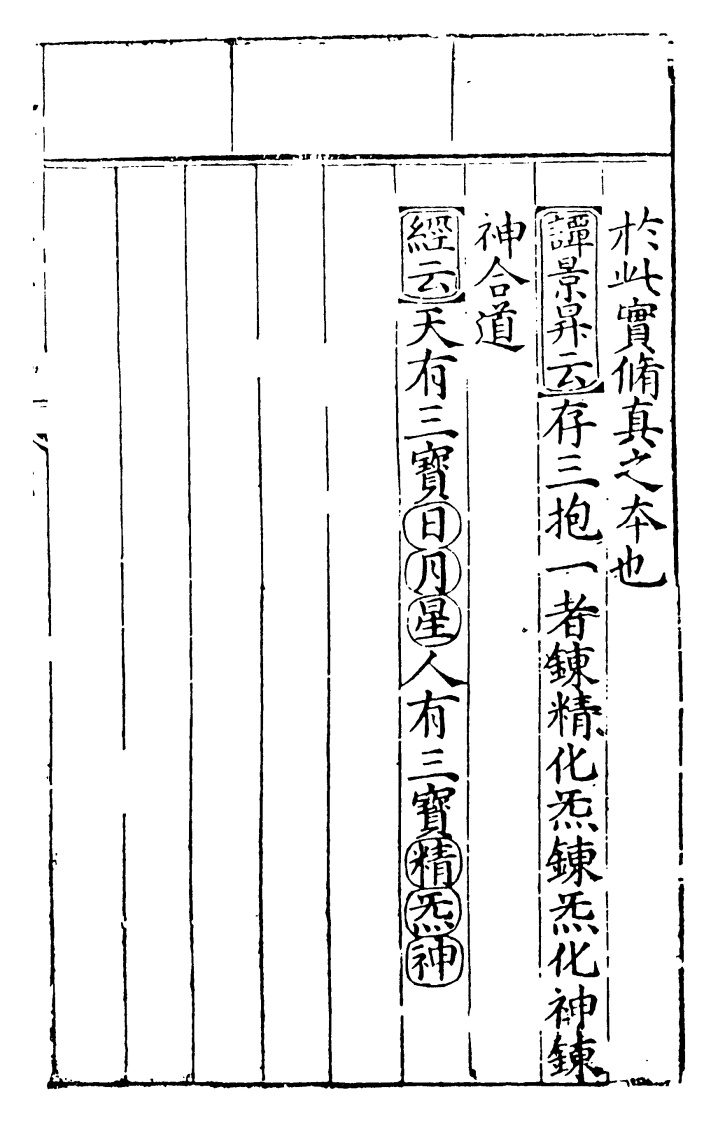 於此實脩真之本也
譚景昇云存三抱一者鍊精化炁鍊炁化神鍊
神合道
經云天有三寳日月星人有三寳精炁神